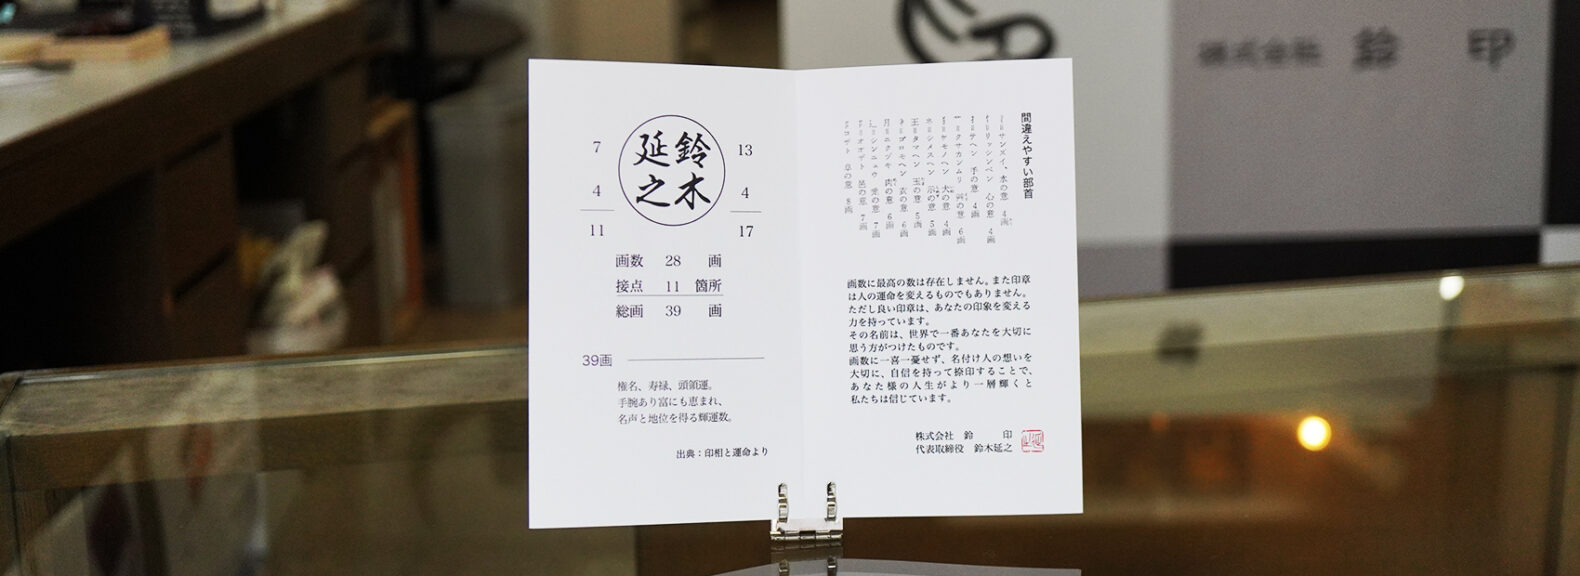 株式会社 鈴 印
7
4
11
鈴木
延之
13
4
17
画数 28 画
接点 11 箇所
総画 39 画
39画
権名、寿禄、頭領運。
手腕あり富にも恵まれ、
名声と地位を得る輝運数。
出典：印相と運命より
間違えやすい部首
氵=サンズイ、水の意 4画
忄=リッシンベン 心の意 4画
扌=テヘン 手の意 4画
艹=クサカンムリ 艸の意 6画
犭=ケモノヘン 犬の意 4画
礻=シメスヘン 示の意 5画
王=タマヘン 玉の意 5画
衤=コロモヘン 衣の意 6画
月=ニクヅキ 肉の意 6画
辶=シンニュウ 辵の意 7画
阝=オオザト 邑の意 7画
阝=コザト 阜の意 8画
画数に最高の数は存在しません。また印章
は人の運命を変えるものでもありません。
ただし良い印章は、あなたの印象を変える
力を持っています。
その名前は、世界で一番あなたを大切に
思う方がつけたものです。
画数に一喜一憂せず、名付け人の想いを
大切に、自信を持って捺印することで、
あなた様の人生がより一層輝くと
私たちは信じています。
株式会社 鈴 印
代表取締役 鈴木延之